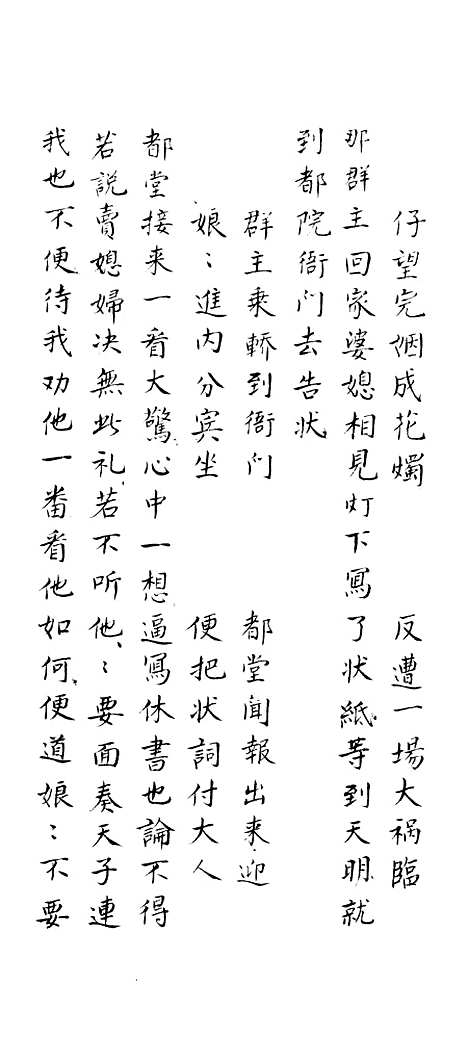 仔望完姻成花燭　反遭一場大禍臨
那群主回家婆媳相見灯下寫了状紙等到天明就
到都院衙门去告状
群主乘轎到衙门　都堂闻報出来迎
娘〻進内分宾坐　便把状詞付大人
都堂接来一看大驚心中一想逼寫休書也論不得
若說賣媳婦决無此礼若不听他〻要面奏天子連
我也不便待我劝他一番看他如何便道娘〻不要